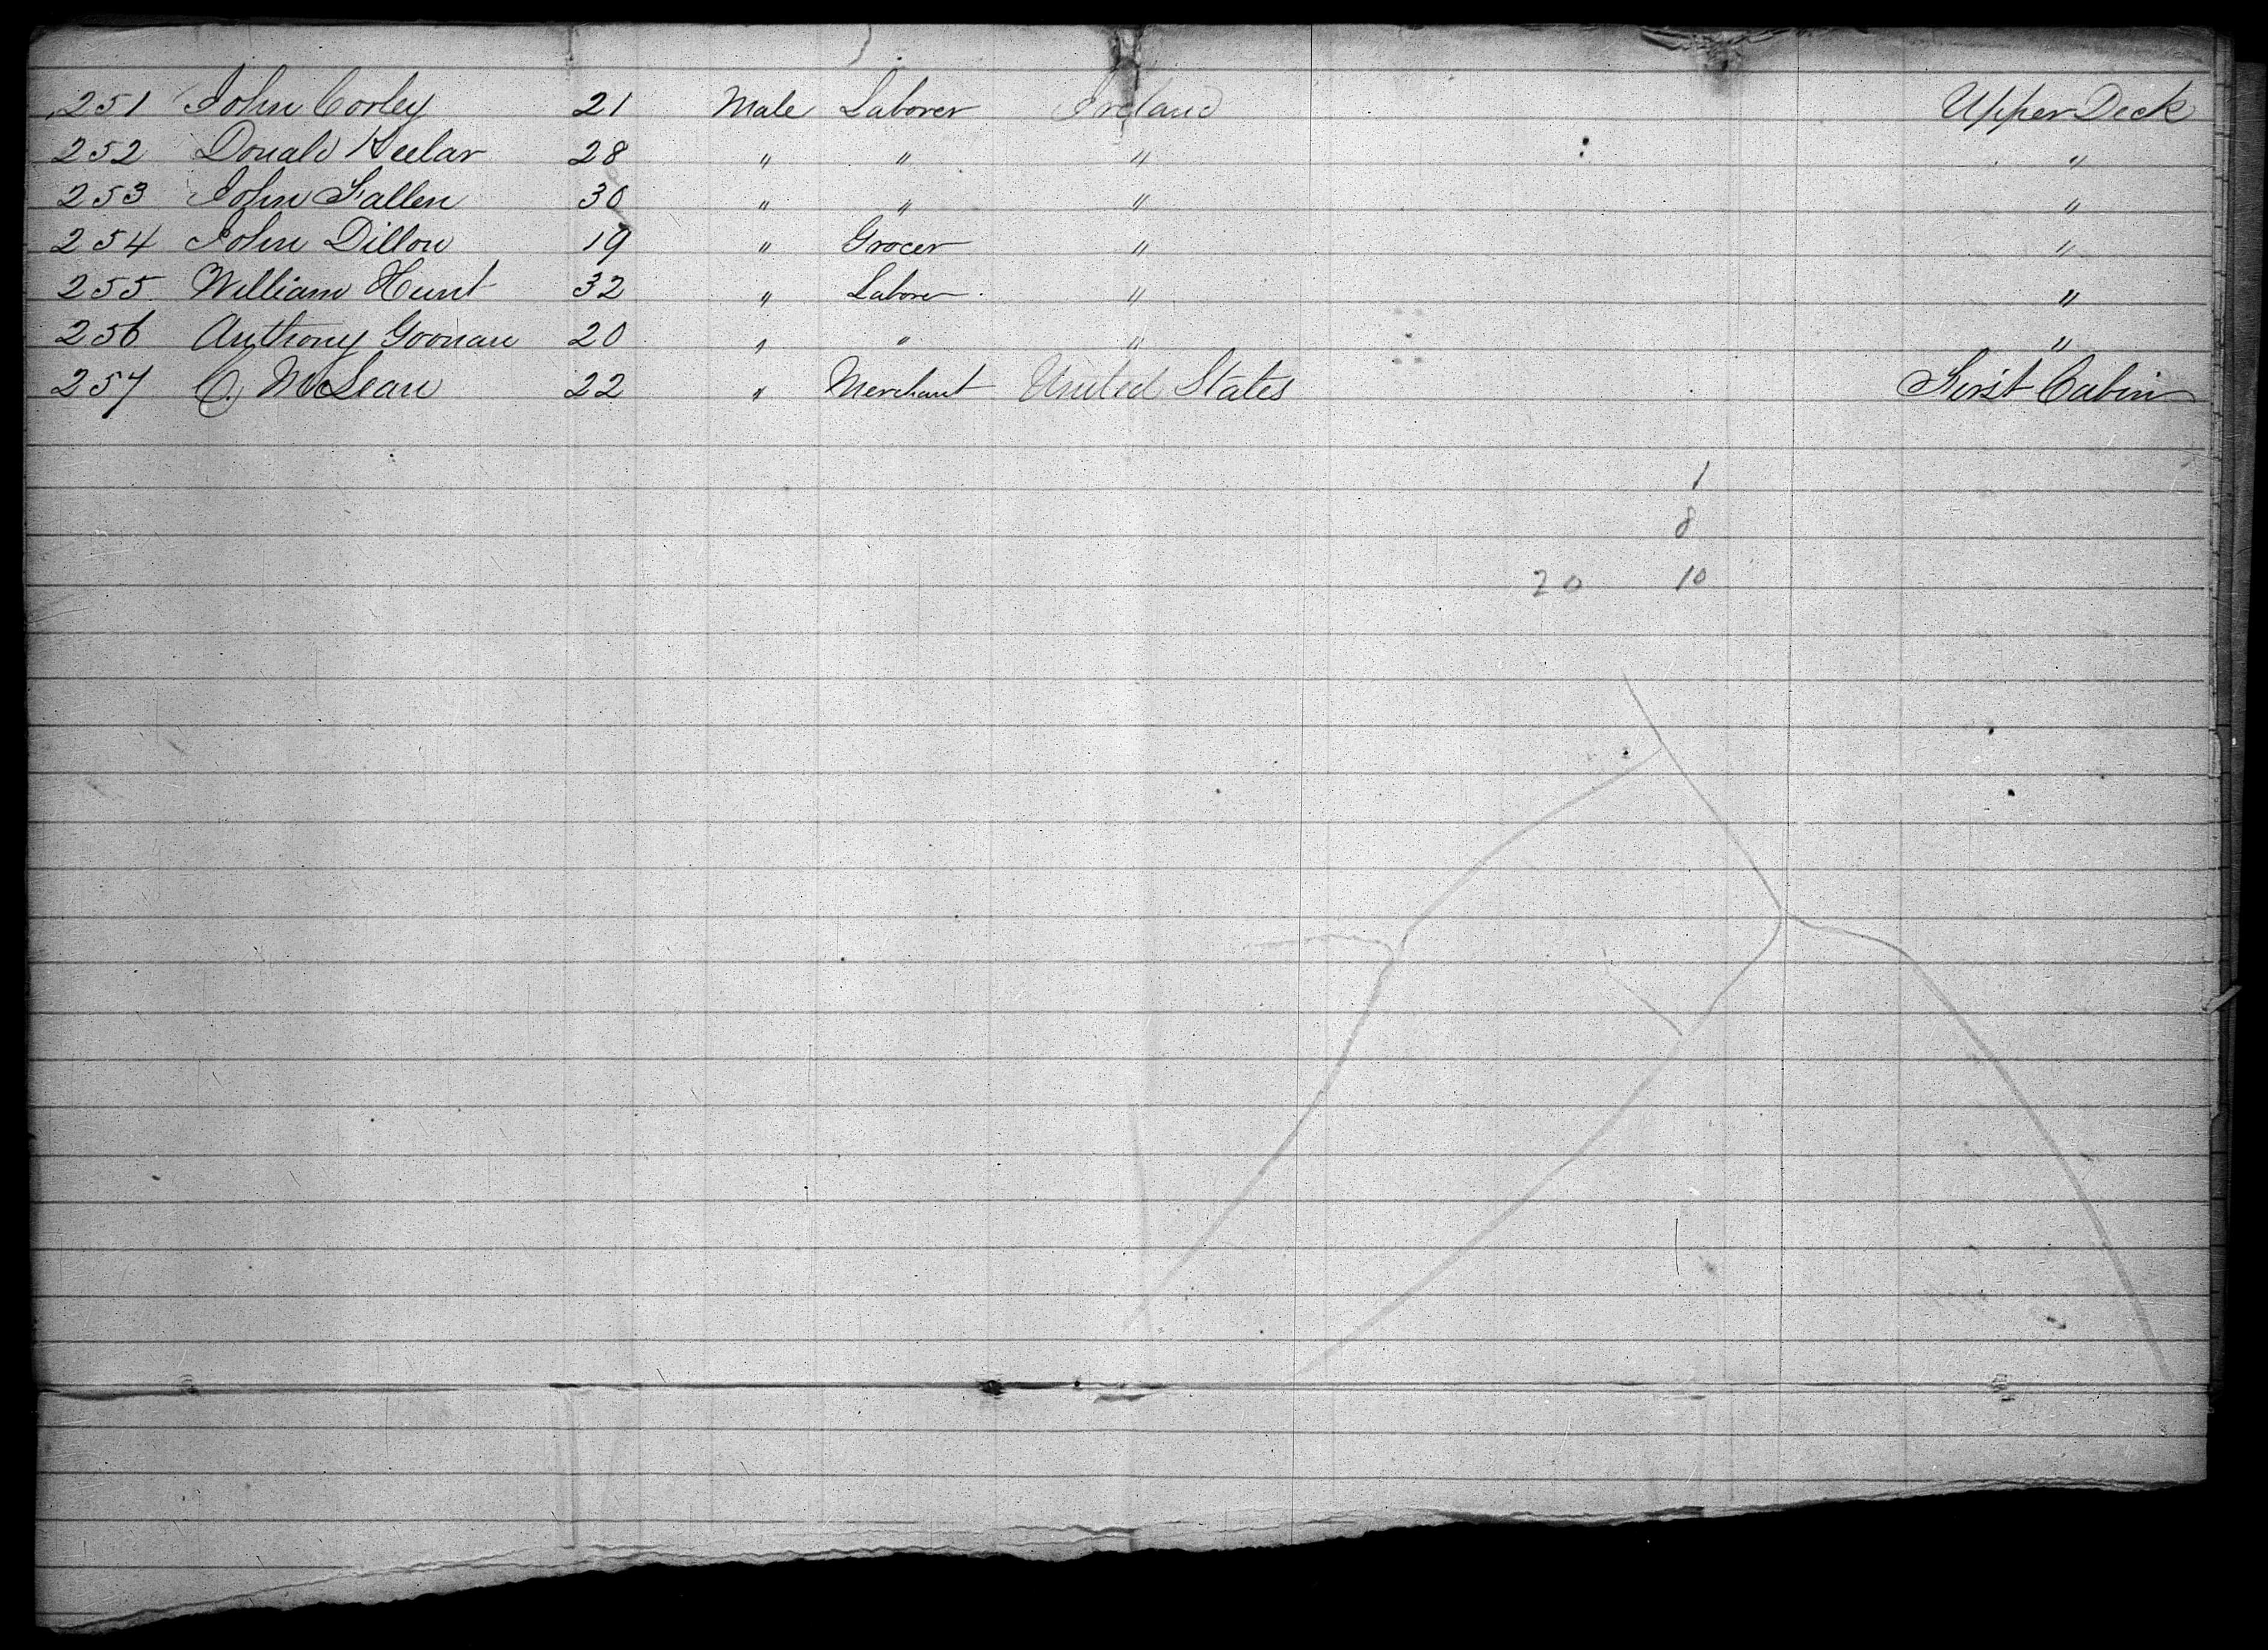 251 John Corley 21 Male Laborer Ireland Upper Deck
252 Donald Keelar 28 " " " "
253 John Fallen 30 " " " "
254 John Dillon 19 " Grocer " "
255 William Hunt 32 " Laborer " "
256 Anthony Goonan 20 " " " "
257 C. McLean 22 " Merchant United States First Cabin
1
8
20 10